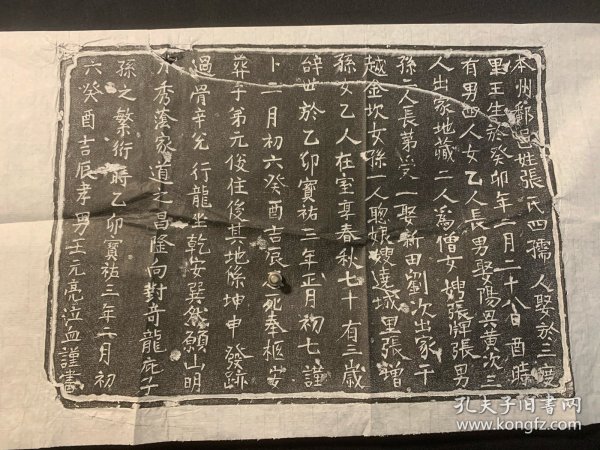 本州鄒邑姓張氏四孺人娶於三度
里王生於癸卯年二月二十八日酉時
有男四人女乙人長男娶陽異黃次三
人出家地藏二人為僧女嫂張畔張男
孫二人長第六一娶新田劉次出家干
越金坎女孫一人聰娘嫂遠城里張增
孫女乙人在室享春秋七十有三歲
辭世於乙卯寶祐三年正月初七謹
卜二月初六癸酉吉辰忌死奉柩安
葬于弟元俊住後其地條坤申發跡
過骨辛兌行龍坐乾安巽然願山明
水秀蔭家道之昌隆向對奇龍庇子
孫之繁衍時乙卯寶祐三年二月初
六癸酉吉辰孝男王元亮泣血謹書
孔夫子旧书网
www.kongfz.com